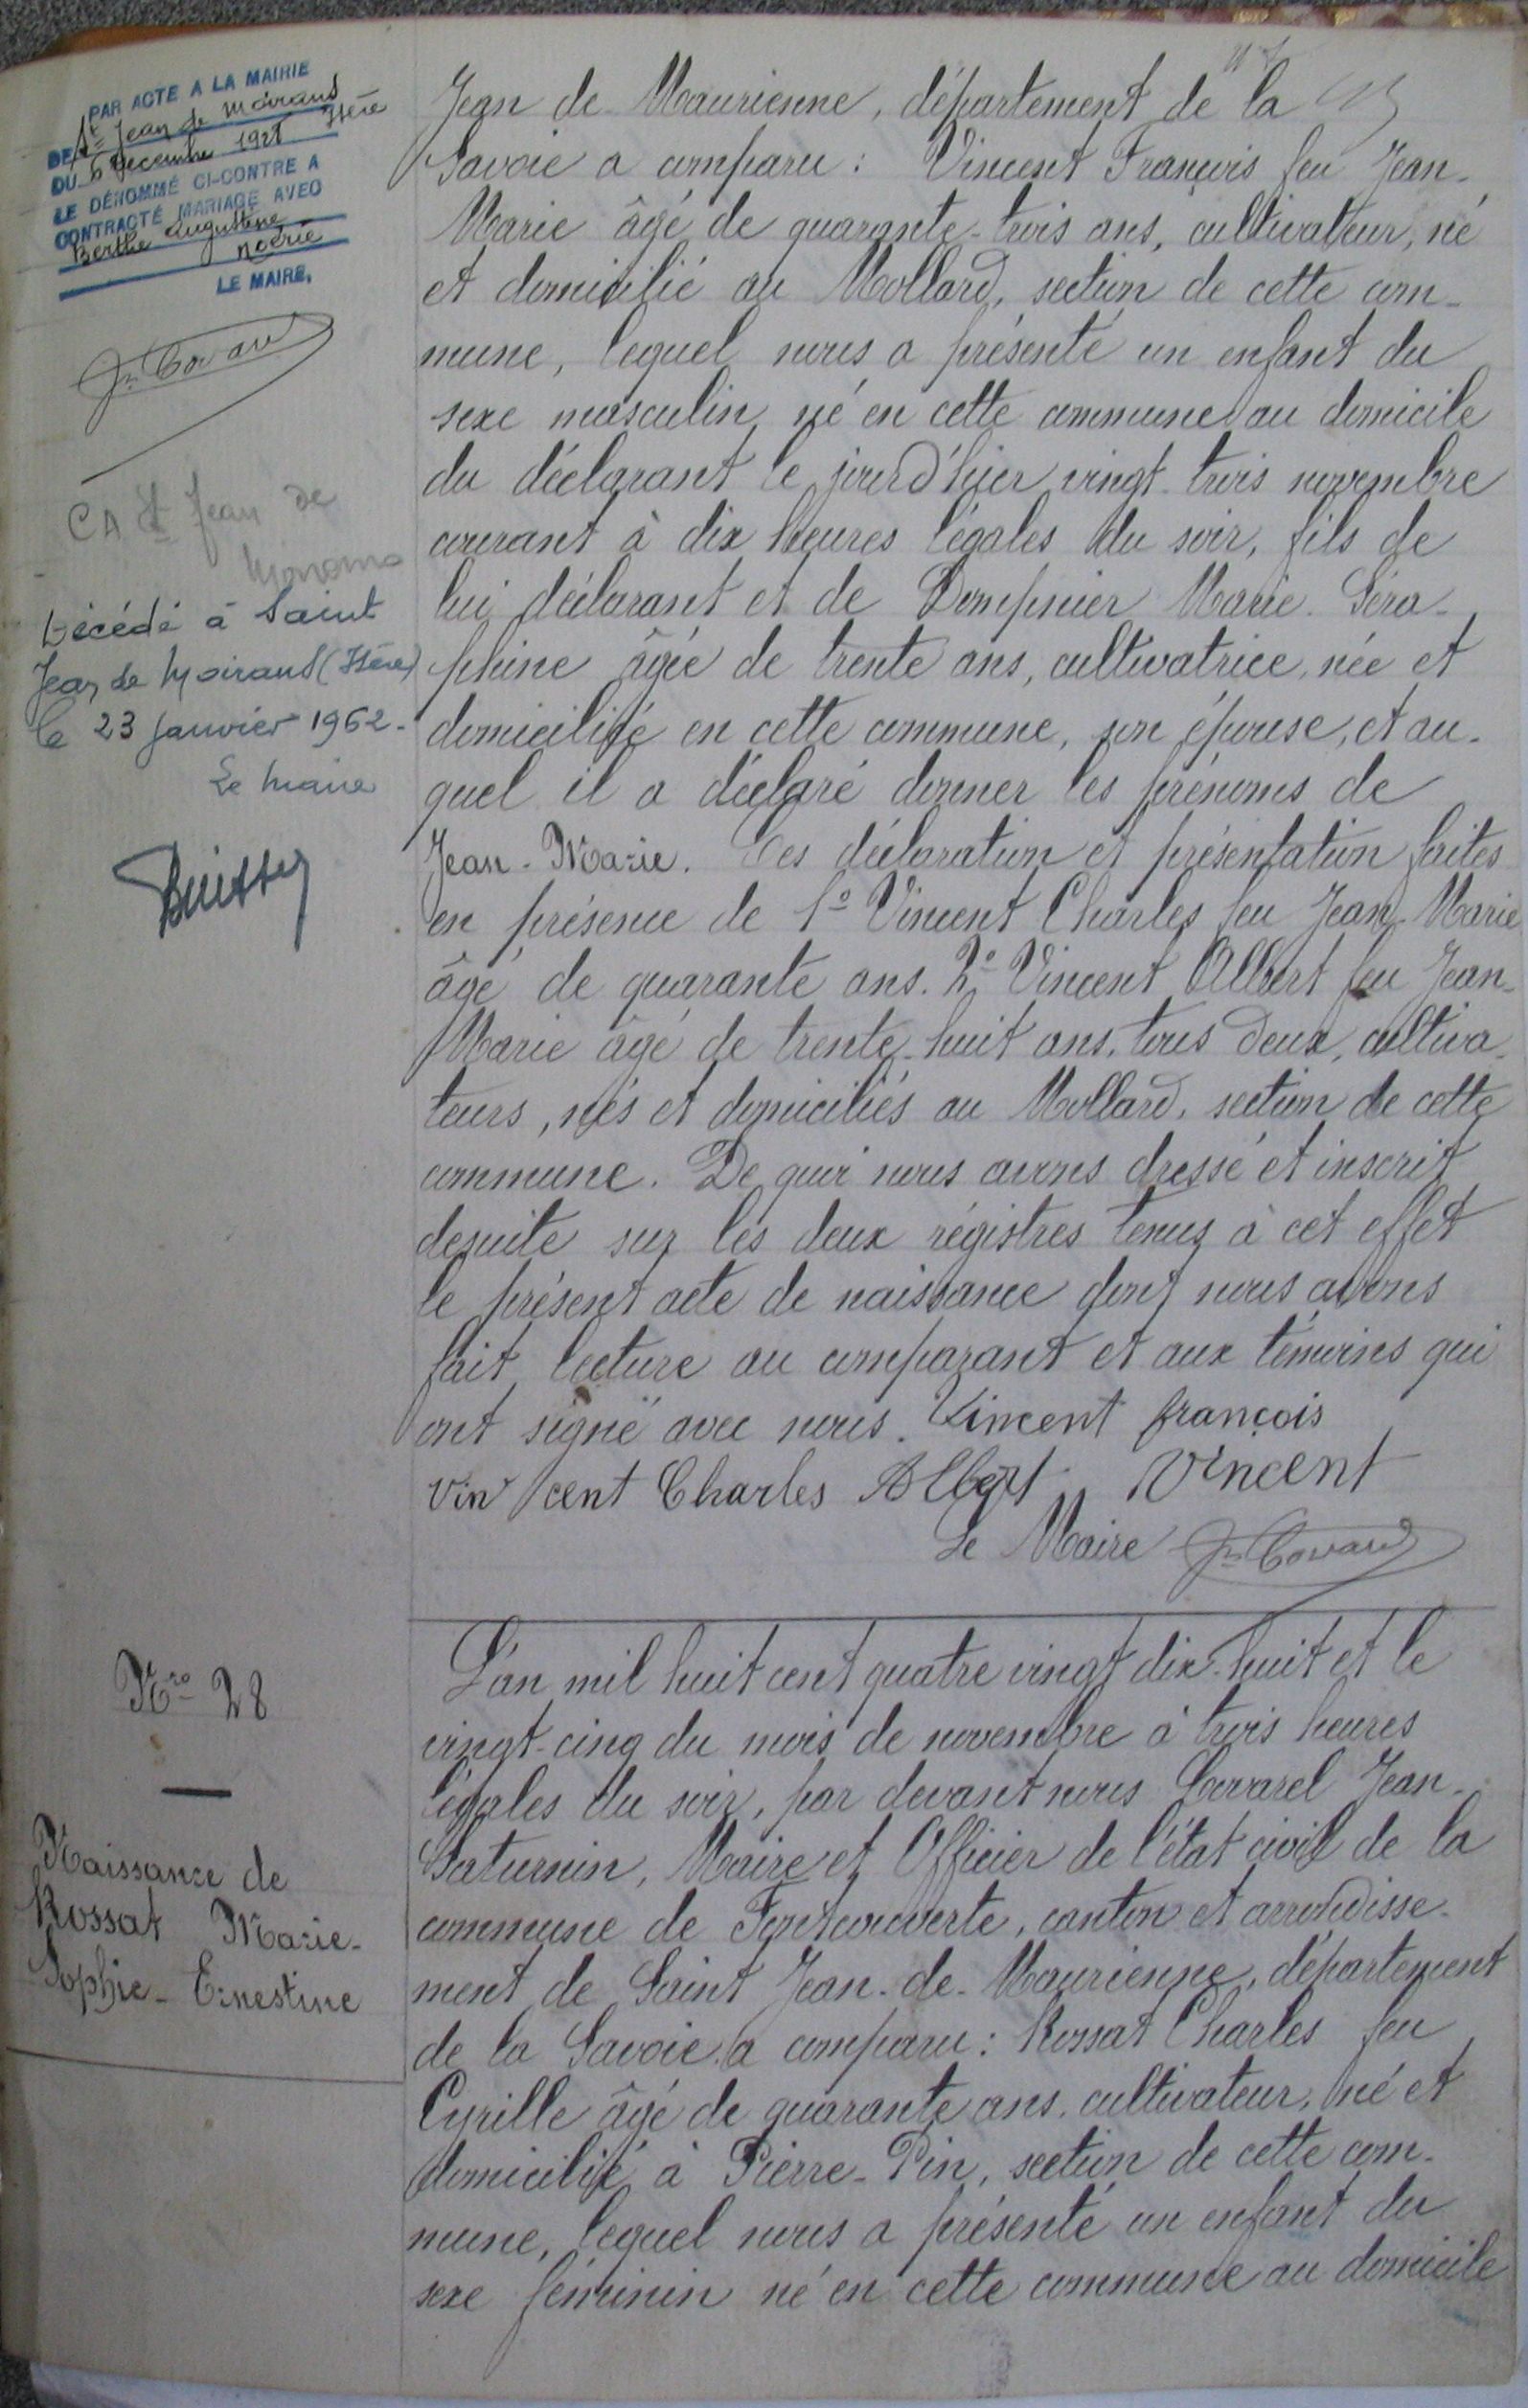 PAR ACTE A LA MAIRIE
DE St Jean de Moirans Isère
DU 6 Décembre 1921
LE DÉNOMMÉ CI-CONTRE A
CONTRACTÉ MARIAGE AVEC
Berthe Augustine
LE MAIRE,
CA St Jean de
Décédé à Saint
Jean de Moirans (Isère)
le 23 Janvier 1962.
Le Maire
Jean de Maurienne, département de la
Savoie a comparu : Vincent François feu Jean-
Marie âgé de quarante-trois ans, cultivateur, né
et domicilié au Mollard, section de cette com-
mune, lequel nous a présenté un enfant du
sexe masculin né en cette commune au domicile
du déclarant le jourd'hier vingt-trois novembre
courant à dix heures légales du soir, fils de
lui déclarant et de Dompnier Marie-Séra-
phine âgée de trente ans, cultivatrice, née et
domiciliée en cette commune, son épouse, et au-
quel il a déclaré donner les prénoms de
Jean-Marie. Ces déclaration et présentation faites
en présence de 1º Vincent Charles feu Jean-Marie
âgé de quarante ans. 2º Vincent Albert feu Jean-
Marie âgé de trente-huit ans, tous deux, cultiva-
teurs, nés et domiciliés au Mollard, section de cette
commune. De quoi nous avons dressé et inscrit
desuite sur les deux régistres tenus à cet effet
le présent acte de naissance dont nous avons
fait lecture au comparant et aux témoins qui
ont signé avec nous. Vincent françois
vincent Charles Albert Vincent
Le Maire
Nro 28
Naissance de
Rossat Marie-
Sophie-Ernestine
L'an mil huit cent quatre vingt dix-huit et le
vingt-cinq du mois de novembre à trois heures
légales du soir, par devant nous Covarel Jean-
Saturnin, Maire et Officier de l'état civil de la
commune de Fontcouverte, canton et arrondisse-
ment de Saint Jean-de-Maurienne, département
de la Savoie a comparu : Rossat Charles feu
Cyrille âgé de quarante ans, cultivateur, né et
domicilié à Pierre-Pin, section de cette com-
mune, lequel nous a présenté un enfant du
sexe féminin né en cette commune au domicile